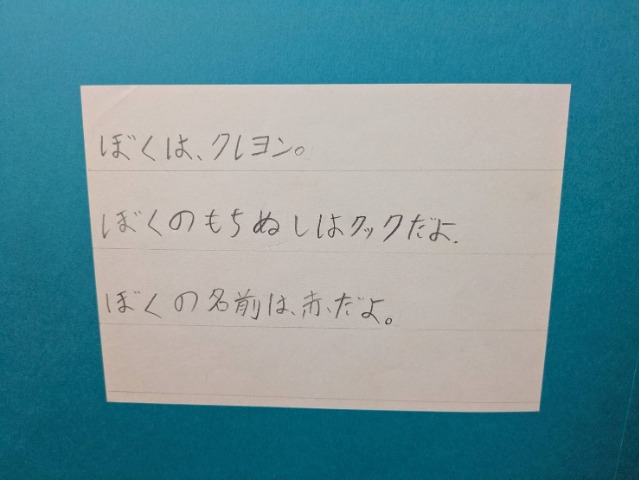 ぼくは、クレヨン。
ぼくのもちぬしはクックだよ.
ぼくの名前は、赤、だよ。